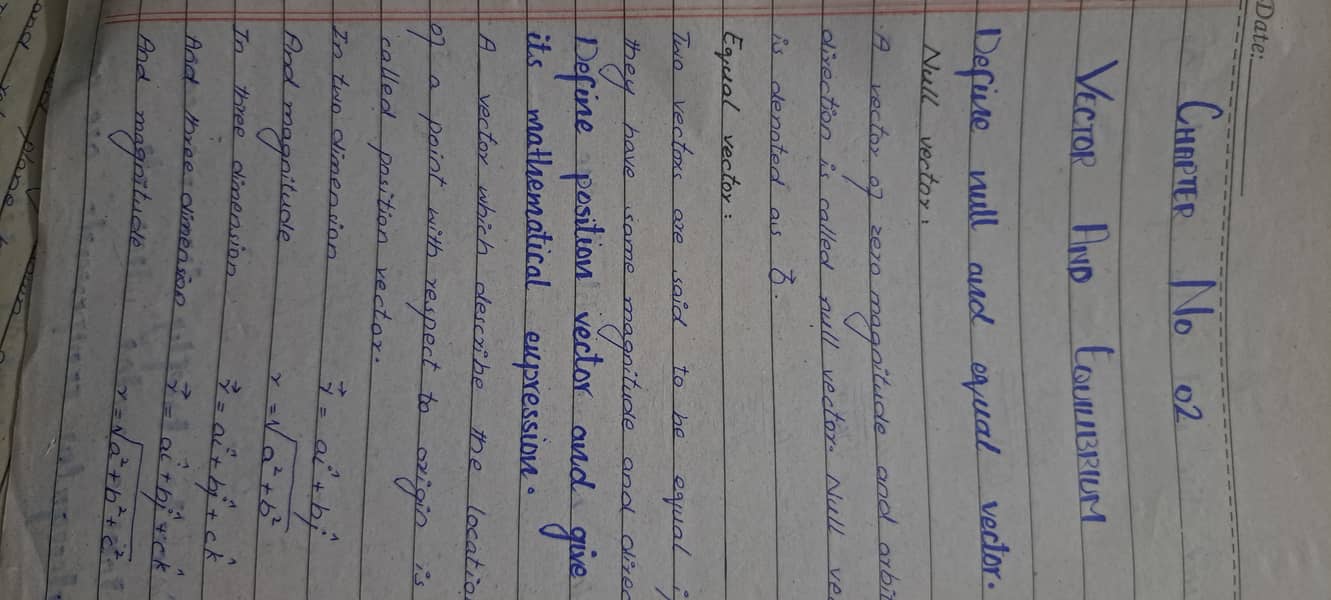 Date:
CHAPTER No 02
VECTOR AND EQUILIBRIUM
Define null and equal vector.
Null vector:
A vector of zero magnitude and arbit
direction is called null vector. Null vec
is denoted as $\vec{0}$.
Equal vector:
Two vectors are said to be equal i
they have same magnitude and direc
Define position vector and give
its mathematical expression.
A vector which describe the locatio
of a point with respect to origin is
called position vector.
In two dimension $\vec{r} = a\hat{i} + b\hat{j}$
And magnitude $r = \sqrt{a^2 + b^2}$
In three dimension $\vec{r} = a\hat{i} + b\hat{j} + c\hat{k}$
And three-dimension $\vec{r} = a\hat{i} + b\hat{j} + c\hat{k}$
And magnitude $r = \sqrt{a^2 + b^2 + c^2}$